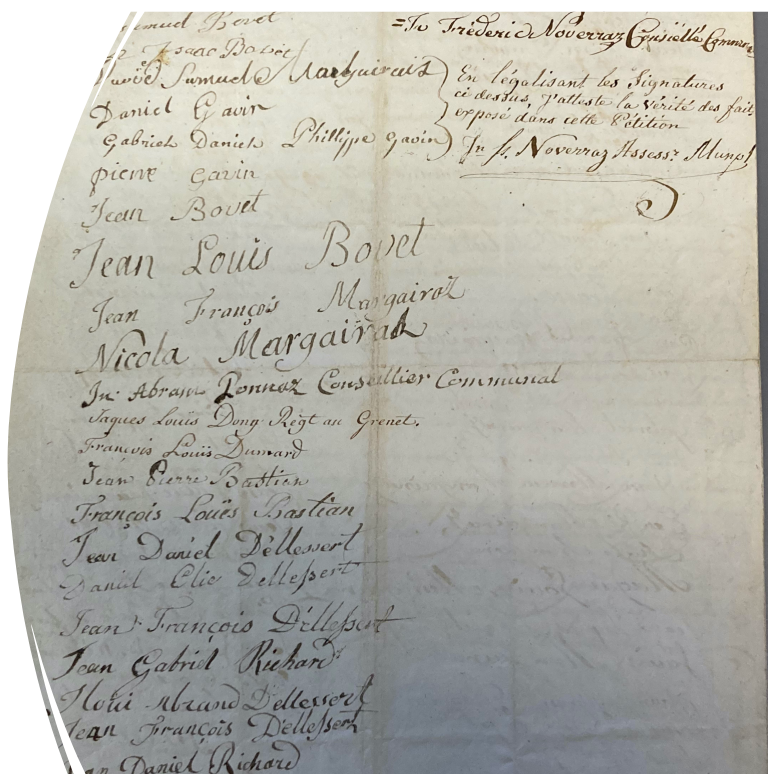 Samuel Bovet
Isaac Bovet
David Samuel Margairaz
Daniel Gavin
Gabriel Daniel Philippe Gavin
pierre Gavin
Jean Bovet
Jean Louis Bovet
Jean François Margairaz
Nicola Margairaz
Jn Abram Ponnaz Conseillier Communal
Jaques Louis Dony Régt au Grenet.
François Louïs Dumard
Jean Pierre Bastien
François Louës Bastian
Jean Daniel Déllessert
Daniel Elie dellessert
Jean François Déllessert
Jean Gabriel Richard
Dellessert
Jean François Dellessert
Jean Daniel Richard
=Jn Fréderic Noverraz Conseillé Commu
En légalisant les Signatures
ci dessus, j'atteste la Vérité des faits
exposé dans cette Pétition
Jn fs. Noverraz Assessr Munpl